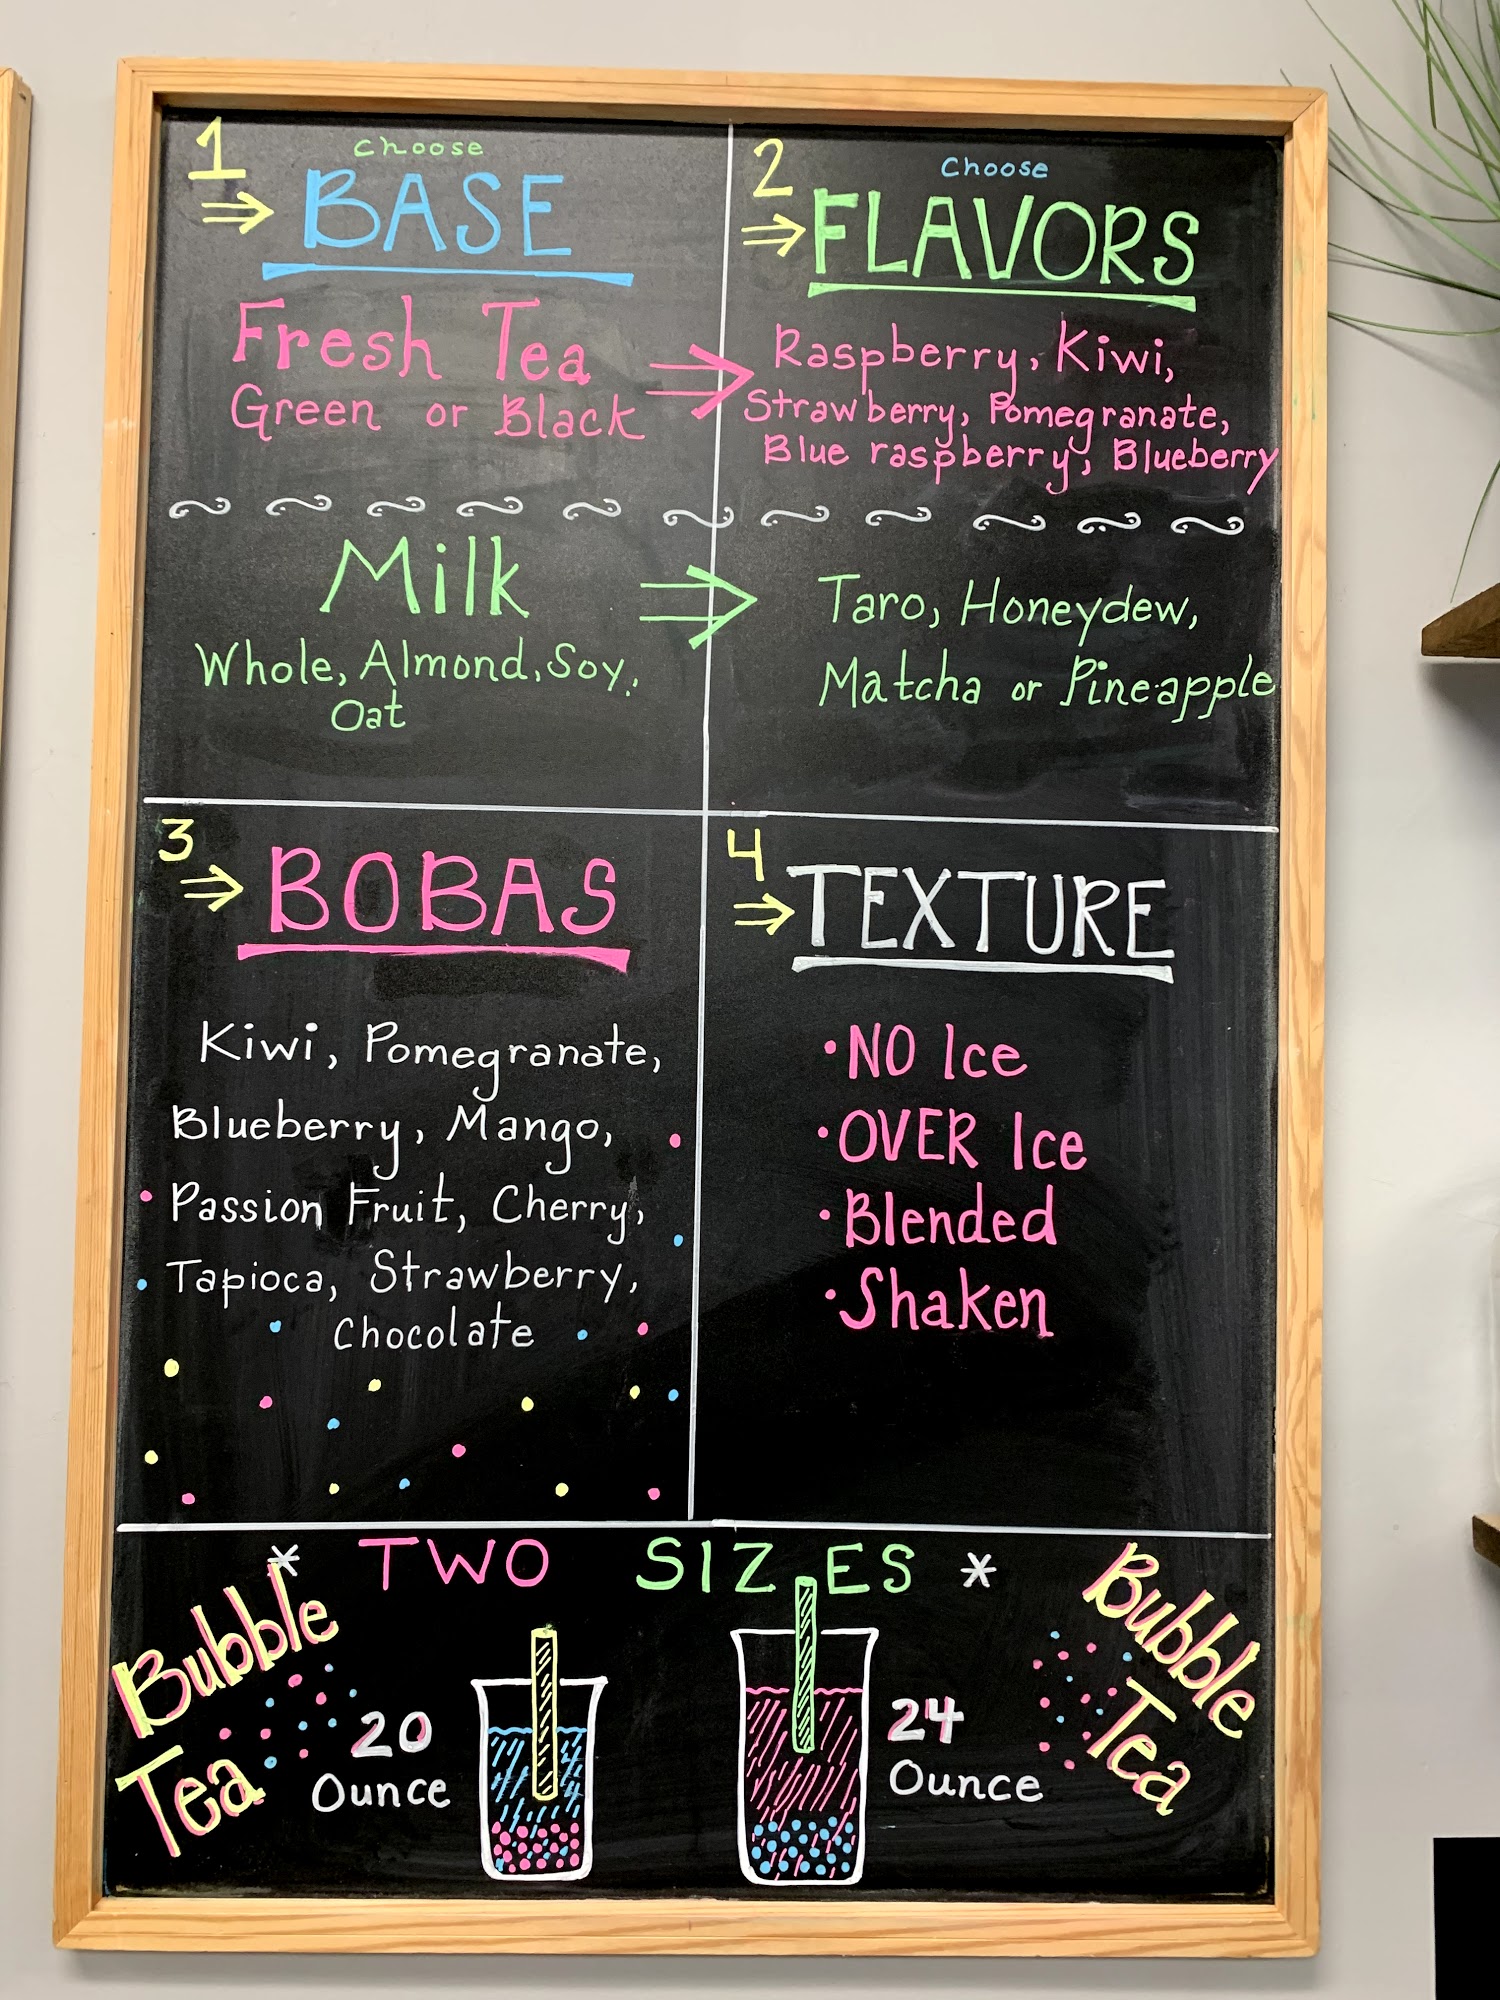 1
choose
BASE
Fresh Tea
Green or Black
Milk
Whole, Almond, Soy,
Oat
2
choose
FLAVORS
Raspberry, Kiwi,
Strawberry, Pomegranate,
Blue raspberry, Blueberry
Taro, Honeydew,
Matcha or Pineapple
3
BOBAS
Kiwi, Pomegranate,
Blueberry, Mango,
Passion Fruit, Cherry,
Tapioca, Strawberry,
Chocolate
4
TEXTURE
• NO Ice
• OVER Ice
• Blended
• Shaken
* TWO SIZES *
Bubble
Tea
20
Ounce
24
Ounce
Bubble
Tea